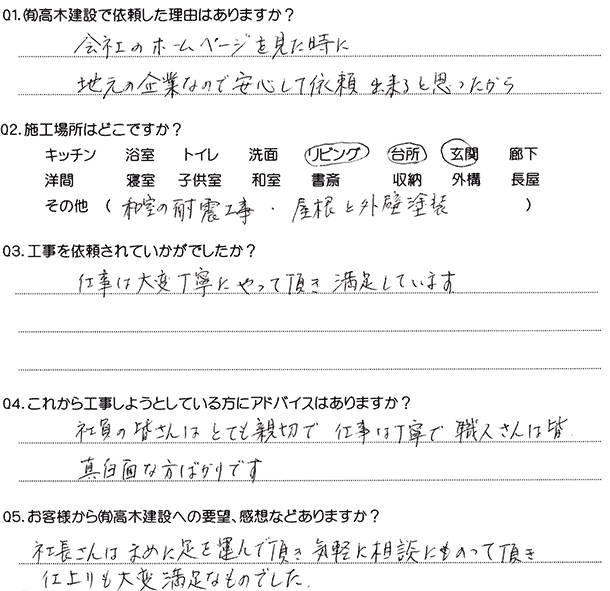 Q1.㈲高木建設で依頼した理由はありますか？
会社のホームページを見た時に
地元の企業なので安心して依頼出来ると思ったから
Q2.施工場所はどこですか？
キッチン 浴室 トイレ 洗面 リビング 台所 玄関 廊下
洋間 寝室 子供室 和室 書斎 収納 外構 長屋
その他 （ 和室の耐震工事・屋根と外壁塗装 ）
Q3.工事を依頼されていかがでしたか？
仕事は大変丁寧にやって頂き満足しています
Q4.これから工事しようとしている方にアドバイスはありますか？
社員の皆さんはとても親切で仕事は丁寧で職人さんは皆
真白面な方ばかりです
Q5.お客様から㈲高木建設への要望、感想などありますか？
社長さんはまめに足を運んで頂き気軽に相談にものって頂き
仕上りも大変満足なものでした.